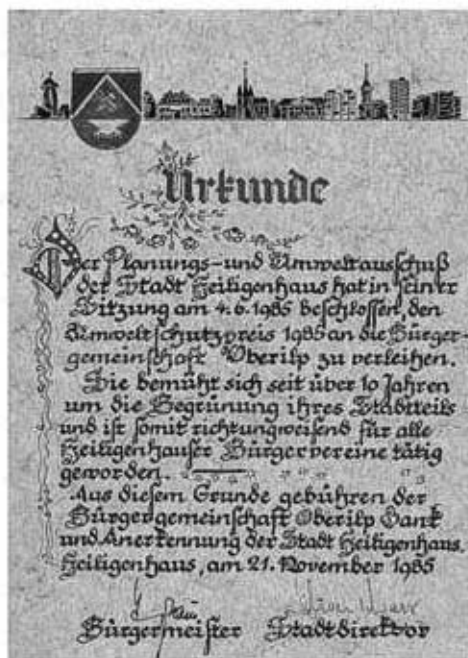 Urkunde
Der Planungs- und Umweltausschuß
der Stadt Heiligenhaus hat in seiner
Sitzung am 4.6.1985 beschlossen, den
Umweltschutzpreis 1985 an die Bürger-
gemeinschaft Oberilp zu verleihen.
Sie bemüht sich seit über 10 Jahren
um die Begrünung ihres Stadtteils
und ist somit richtungweisend für alle
Heiligenhauser Bürgervereine tätig
geworden.
Aus diesem Grunde gebühren der
Bürgergemeinschaft Oberilp Dank
und Anerkennung der Stadt Heiligenhaus.
Heiligenhaus, am 21. November 1985
Bürgermeister Stadtdirektor